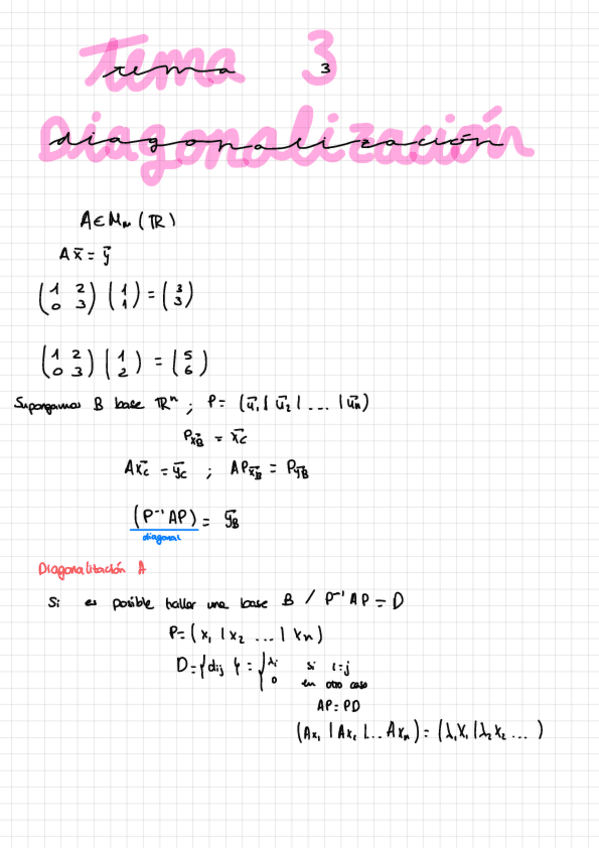 tema 3
diagonalización
A ∈ Mn (ℝ)
Ax̄ = ȳ
(1 2 / 0 3) (1 / 1) = (3 / 3)
(1 2 / 0 3) (1 / 2) = (5 / 6)
Supongamos B base ℝⁿ ; P = (ū₁ | ū₂ | ... | ūn)
Px̄_B = x̄_C
Ax̄_C = ȳ_C ; APx̄_B = Pȳ_B
(P⁻¹AP) = ȳ_B
diagonal
Diagonalización A
Si es posible hallar una base B / P⁻¹AP = D
P = (x₁ | x₂ ... | xn)
D = {dij} = { λi si i=j
0 en otro caso
AP = PD
(Ax₁ | Ax₂ | ... Axn) = (λ₁x₁ | λ₂x₂ ... )